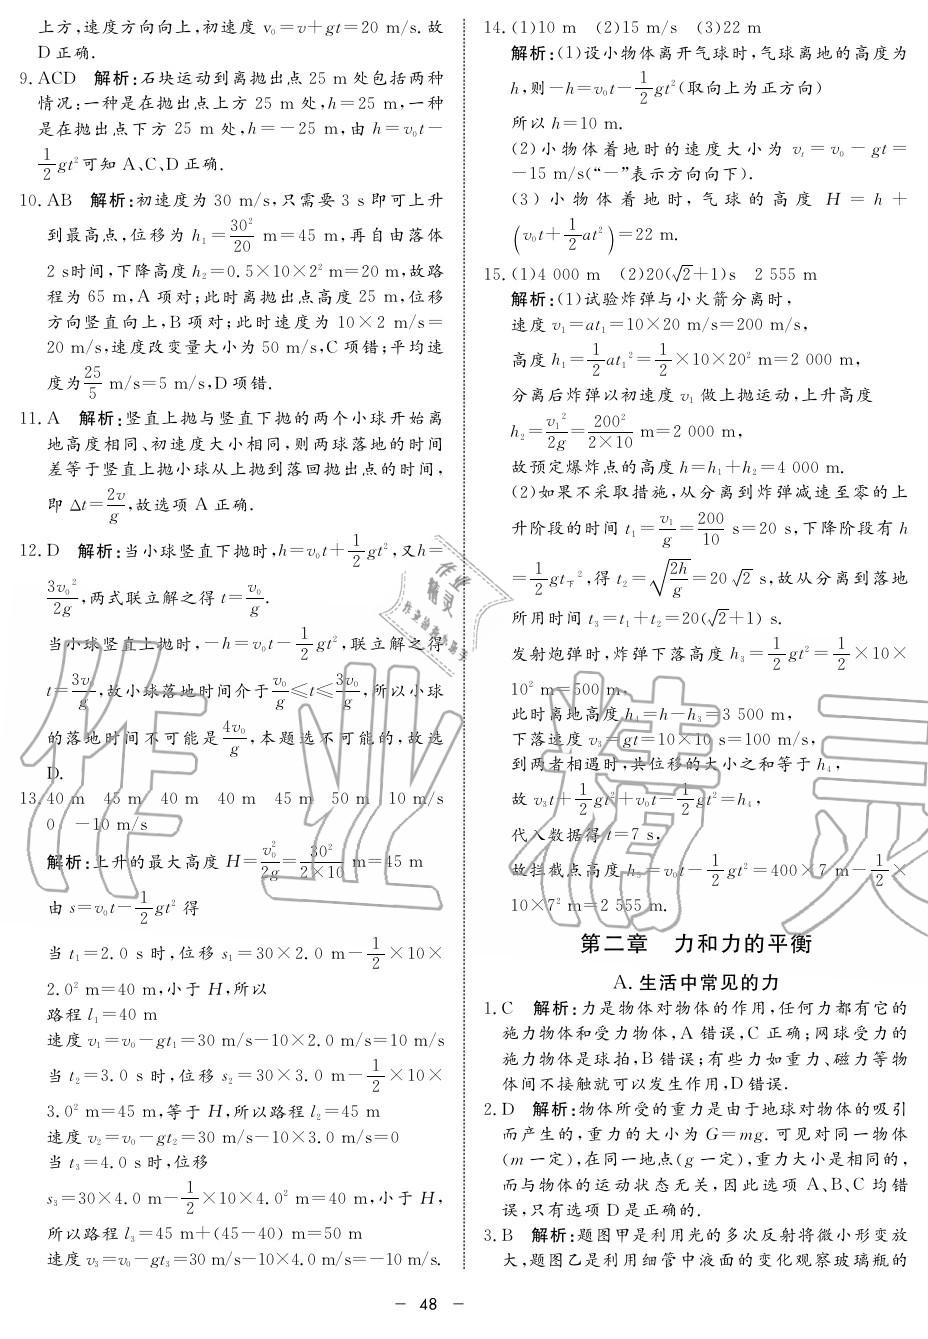 上方,速度方向向上,初速度 v₀=v+gt=20 m/s.故
D 正确.
9. ACD 解析:石块运动到离抛出点 25 m 处包括两种
情况:一种是在抛出点上方 25 m 处,h=25 m,一种
是在抛出点下方 25 m 处,h=-25 m,由 h=v₀t-
1/2gt²可知 A、C、D 正确.
10. AB 解析:初速度为 30 m/s,只需要 3 s 即可上升
到最高点,位移为 h₁=30²/20 m=45 m,再自由落体
2 s时间,下降高度 h₂=0.5×10×2² m=20 m,故路
程为 65 m,A 项对;此时离抛出点高度 25 m,位移
方向竖直向上,B 项对;此时速度为 10×2 m/s=
20 m/s,速度改变量大小为 50 m/s,C 项错;平均速
度为25/5 m/s=5 m/s,D 项错.
11. A 解析:竖直上抛与竖直下抛的两个小球开始离
地高度相同、初速度大小相同,则两球落地的时间
差等于竖直上抛小球从上抛到落回抛出点的时间,
即 Δt=2v/g,故选项 A 正确.
12. D 解析:当小球竖直下抛时,h=v₀t+1/2gt²,又h=
3v₀²/2g,两式联立解之得 t=v₀/g.
当小球竖直上抛时,-h=v₀t-1/2gt²,联立解之得
t=3v₀/g,故小球落地时间介于v₀/g≤t≤3v₀/g,所以小球
的落地时间不可能是4v₀/g,本题选不可能的,故选
D.
13. 40 m 45 m 40 m 40 m 45 m 50 m 10 m/s
0 -10 m/s
解析:上升的最大高度 H=v₀²/2g=30²/(2×10) m=45 m
由 s=v₀t-1/2gt² 得
当 t₁=2.0 s 时,位移 s₁=30×2.0 m-1/2×10×
2.0² m=40 m,小于 H,所以
路程 l₁=40 m
速度 v₁=v₀-gt₁=30 m/s-10×2.0 m/s=10 m/s
当 t₂=3.0 s 时,位移 s₂=30×3.0 m-1/2×10×
3.0² m=45 m,等于 H,所以路程 l₂=45 m
速度 v₂=v₀-gt₂=30 m/s-10×3.0 m/s=0
当 t₃=4.0 s 时,位移
s₃=30×4.0 m-1/2×10×4.0² m=40 m,小于 H,
所以路程 l₃=45 m+(45-40) m=50 m
速度 v₃=v₀-gt₃=30 m/s-10×4.0 m/s=-10 m/s.
14. (1)10 m (2)15 m/s (3)22 m
解析:(1)设小物体离开气球时,气球离地的高度为
h,则-h=v₀t-1/2gt²(取向上为正方向)
所以 h=10 m.
(2)小物体着地时的速度大小为 vₜ=v₀-gt=
-15 m/s(“-”表示方向向下).
(3)小物体着地时,气球的高度 H=h+
(v₀t+1/2at²)=22 m.
15. (1)4 000 m (2)20(√2+1)s 2 555 m
解析:(1)试验炸弹与小火箭分离时,
速度 v₁=at₁=10×20 m/s=200 m/s,
高度 h₁=1/2at₁²=1/2×10×20² m=2 000 m,
分离后炸弹以初速度 v₁ 做上抛运动,上升高度
h₂=v₁²/2g=200²/(2×10) m=2 000 m,
故预定爆炸点的高度 h=h₁+h₂=4 000 m.
(2)如果不采取措施,从分离到炸弹减速至零的上
升阶段的时间 t₁=v₁/g=200/10 s=20 s,下降阶段有 h
=1/2gt下²,得 t₂=√(2h/g)=20√2 s,故从分离到落地
所用时间 t₃=t₁+t₂=20(√2+1) s.
发射炮弹时,炸弹下落高度 h₃=1/2gt²=1/2×10×
10² m=500 m,
此时离地高度 h₄=h-h₃=3 500 m,
下落速度 v₃=gt=10×10 s=100 m/s,
到两者相遇时,共位移的大小之和等于 h₄,
故 v₃t+1/2gt²+v₀t-1/2gt²=h₄,
代入数据得 t=7 s,
故拦截点高度 h₅=v₀t-1/2gt²=400×7 m-1/2×
10×7² m=2 555 m.
第二章 力和力的平衡
A. 生活中常见的力
1. C 解析:力是物体对物体的作用,任何力都有它的
施力物体和受力物体,A 错误,C 正确;网球受力的
施力物体是球拍,B 错误;有些力如重力、磁力等物
体间不接触就可以发生作用,D 错误.
2. D 解析:物体所受的重力是由于地球对物体的吸引
而产生的,重力的大小为 G=mg. 可见对同一物体
(m 一定),在同一地点(g 一定),重力大小是相同的,
而与物体的运动状态无关,因此选项 A、B、C 均错
误,只有选项 D 是正确的.
3. B 解析:题图甲是利用光的多次反射将微小形变放
大,题图乙是利用细管中液面的变化观察玻璃瓶的
- 48 -
作业精灵
作业
精灵